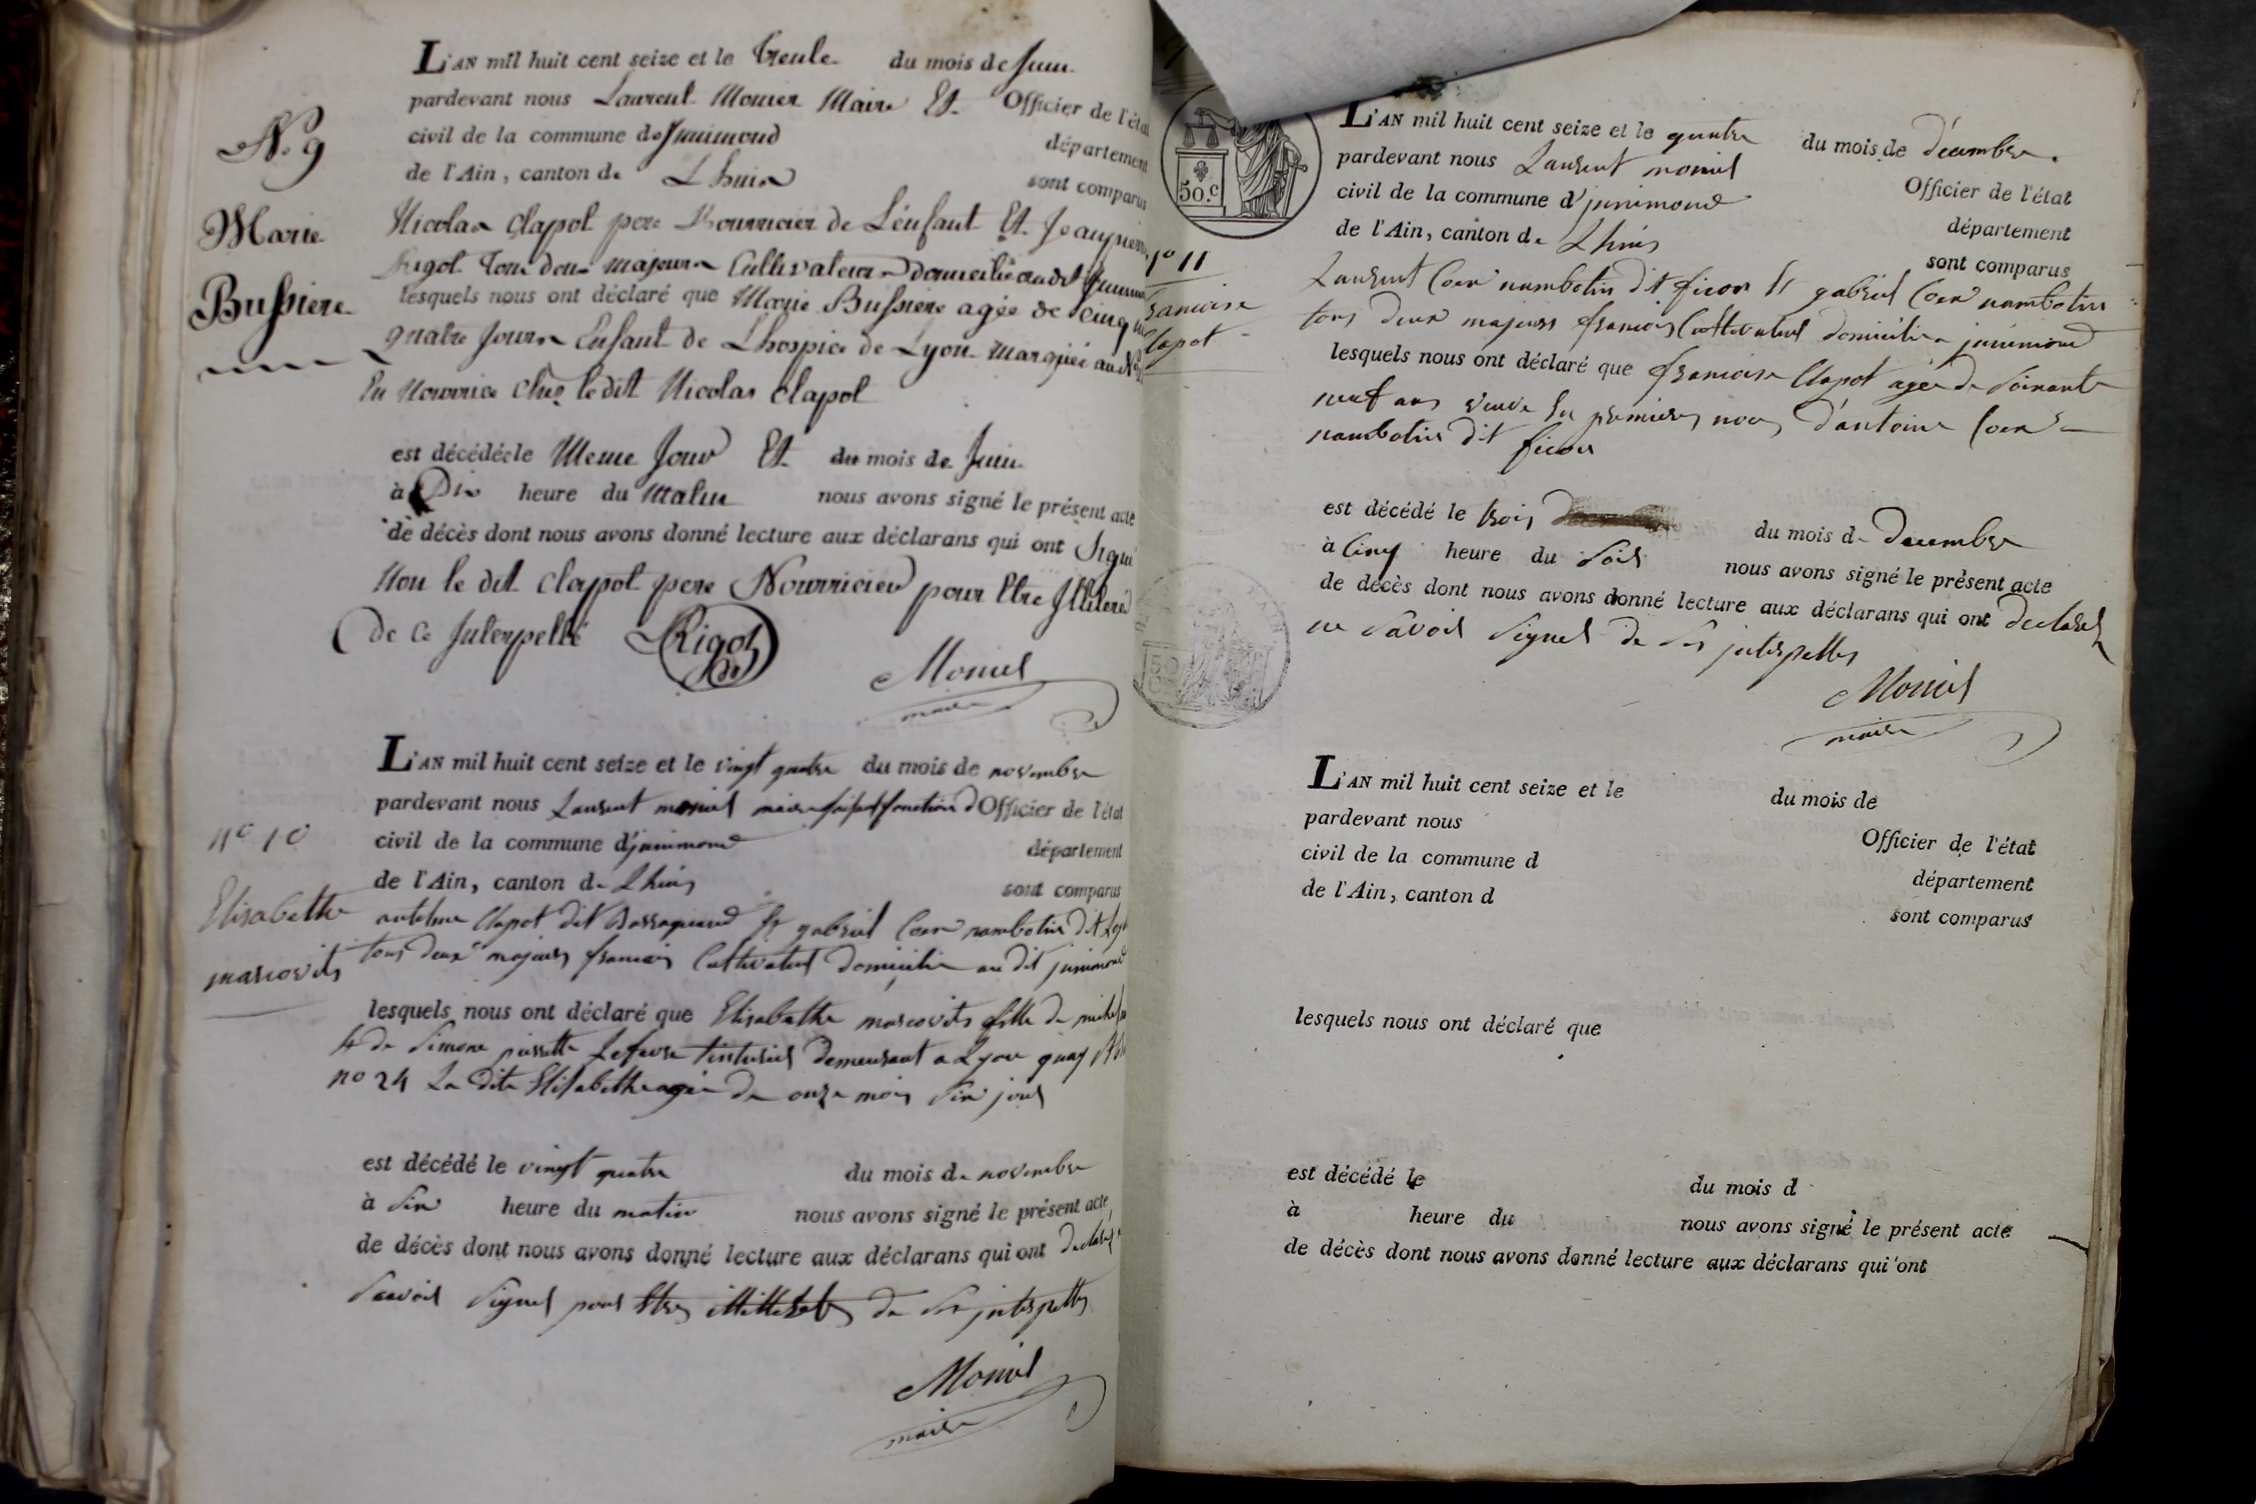 L'AN mil huit cent seize et le Trente du mois de Juin
pardevant nous Laurent Monier Maire Et Officier de l'état
civil de la commune de Junimond département
de l'Ain, canton de Lhuis sont comparus
N.o 9
Marie
Bussiere
Nicolas Clapot pere Nourricier de L'enfant Et Jeanpierre
Rigot Tous deux majeurs Cultivateurs domiciliés audit
lesquels nous ont déclaré que Marie Bussiere agée de Cinq
quatre Jours Enfant de Lhospice de Lyon Marquée au
En Nourrice Chez le dit Nicolas Clapot
est décédée le Meme Jour Et du mois de Juin
à Dix heure du Matin nous avons signé le présent acte
de décès dont nous avons donné lecture aux déclarans qui ont Signé
Non le dit Clapot pere Nourricier pour Etre Illiteré
De Ce Interpellé Rigot
Moniel
maire
L'AN mil huit cent seize et le vingt quatre du mois de novembre
pardevant nous Laurent moniel maire fonction d Officier de l'état
civil de la commune d'junimond département
de l'Ain, canton de Lhuis sont comparus
n.o 10
Elisabethe
marcovits
antelme Clapot dit Barraquand Et gabriel Coeur nambotin dit
tous deux majeurs francais Cultivateurs domicilie au dit junimond
lesquels nous ont déclaré que Elisabethe marcovits fille de
Et de Simone pierrette Lefevre teinturier demeurant a Lyon quay
no 24 La dite Elisabethe agée de onze mois Six jours
est décédé le vingt quatre du mois de novembre
à Six heure du matin nous avons signé le présent acte,
de décès dont nous avons donné lecture aux déclarans qui ont declaré
Savoir Signer pour Etres illitteres de Ses interpelles
Moniel
maire
50.c
L'AN mil huit cent seize et le quatre du mois de décembre.
pardevant nous Laurent moniel Officier de l'état
civil de la commune d'junimond département
de l'Ain, canton de Lhuis sont comparus
n.o 11
francoise
Clapot
Laurent Coeur nambotin dit ficon Et gabriel Coeur nambotin
tous deux majeurs francais Cultivateurs domicilie a junimond
lesquels nous ont déclaré que francoise Clapot agée de Soixante
neuf ans veuve En premieres noces d'antoine Coeur
nambotin dit ficon
est décédé le trois du mois de decembre
à Cinq heure du Soir nous avons signé le présent acte
de décès dont nous avons donné lecture aux déclarans qui ont declaré
ne Savoir Signer de Ses interpelles
Moniel
maire
L'AN mil huit cent seize et le du mois de
pardevant nous Officier de l'état
civil de la commune d département
de l'Ain, canton d sont comparus
lesquels nous ont déclaré que
est décédé le du mois d
à heure du nous avons signé le présent acte
de décès dont nous avons donné lecture aux déclarans qui ont